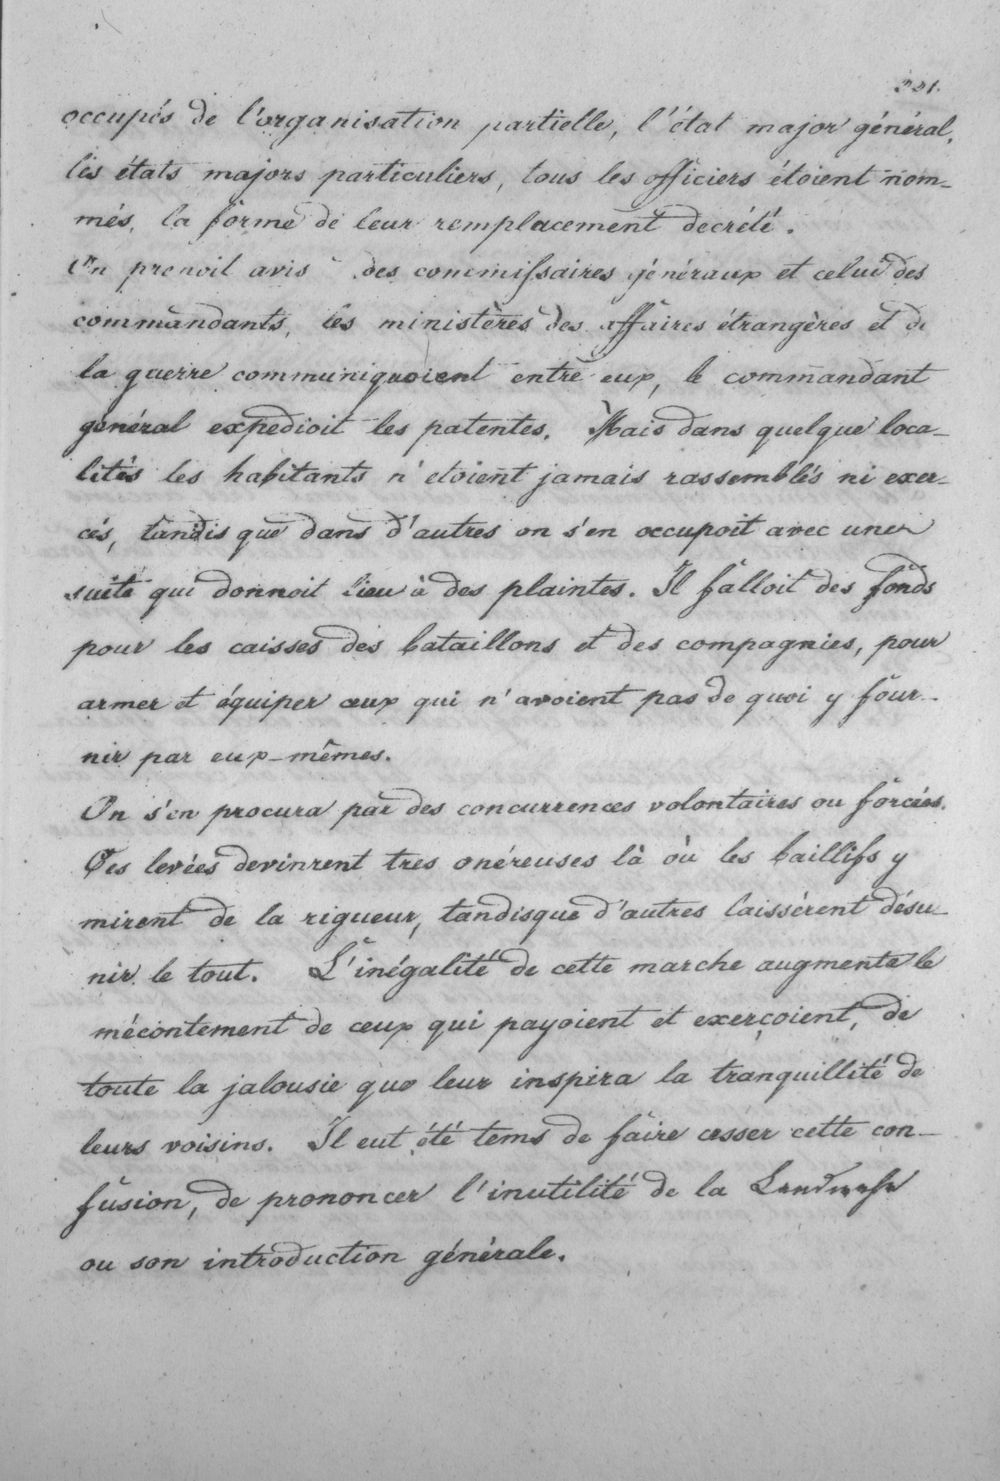 221.
occupés de l'organisation partielle, l'état major général,
les états majors particuliers, tous les officiers étoient nom-
més, la forme de leur remplacement decrété.
On prenoit avis des commissaires généraux et celui des
commandants, les ministères des affaires étrangères et de
la guerre communiquoient entre eux, le commandant
général expedioit les patentes. Mais dans quelque loca-
lités les habitants n'etoient jamais rassemblés ni exer-
cés, tandis que dans d'autres on s'en occupoit avec une
suite qui donnoit lieu à des plaintes. Il falloit des fonds
pour les caisses des bataillons et des compagnies, pour
armer et équiper ceux qui n'avoient pas de quoi y four-
nir par eux-mêmes.
On s'en procura par des concurrences volontaires ou forcées.
Ces levées devinrent tres onéreuses là où les baillifs y
mirent de la rigueur, tandisque d'autres laissérent désu-
nir le tout. L'inégalité de cette marche augmenta le
mécontement de ceux qui payoient et exerçoient, de
toute la jalousie que leur inspira la tranquillité de
leurs voisins. Il eut été tems de faire cesser cette con-
fusion, de prononcer l'inutilité de la Landwehr
ou son introduction générale.